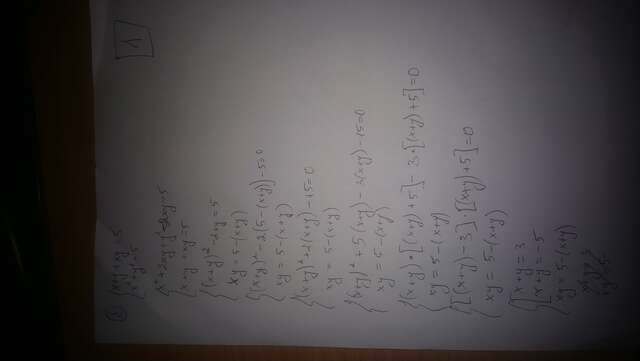 1
2) { x+y+xy=5
x²+y²=5
{ x²+2xy+y²-2xy=5
x+y+xy=5
{ (x+y)²-2xy=5
xy=5-(x+y)
{ (x+y)²-2·[5-(x+y)]-5=0
xy=5-(x+y)
{ (x+y)²+2(x+y)-15=0
xy=5-(x+y)
{ (x+y)²+5(x+y)-3(x+y)-15=0
xy=5-(x+y)
{ (x+y)·[(x+y)+5]-3·[(x+y)+5]=0
xy=5-(x+y)
{ [(x+y)-3]·[(x+y)+5]=0
xy=5-(x+y)
{ [ x+y=3
x+y=-5
xy=5-(x+y)